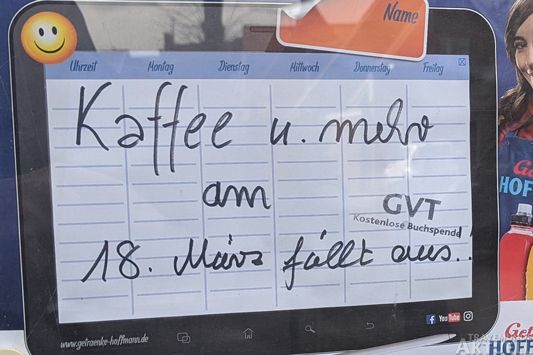 Name
Uhrzeit Montag Dienstag Mittwoch Donnerstag Freitag
Kaffee u. mehr
am
GVT
Kostenlose Buchspende
18. März fällt aus..
www.getraenke-hoffmann.de
You Tube
HOF
HOFF